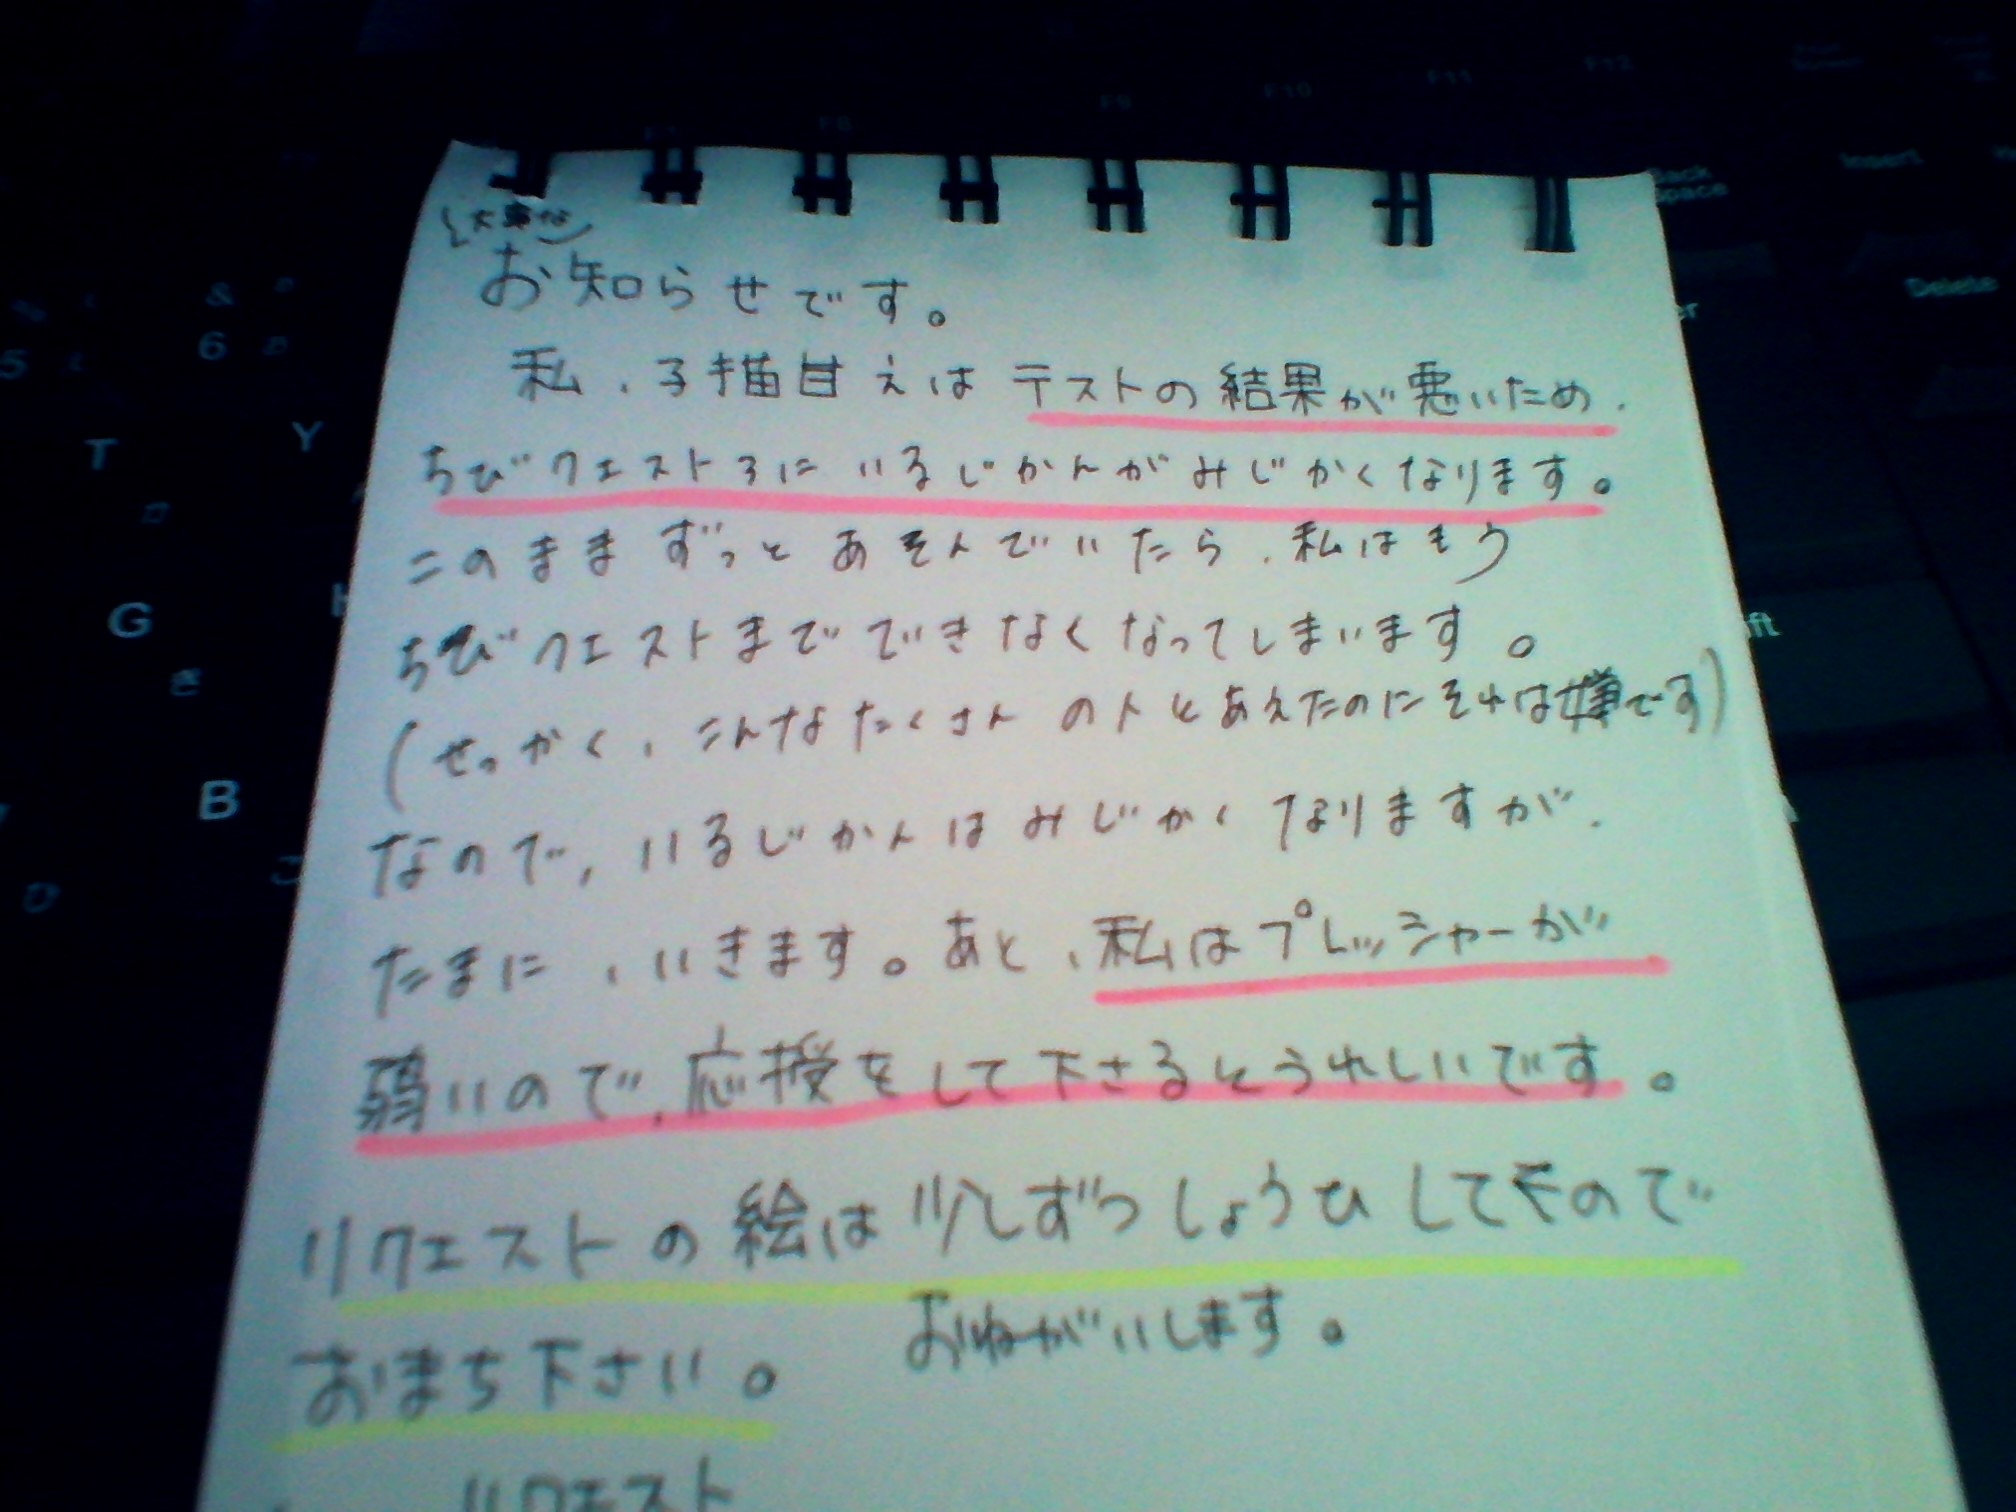 F7 F8 F9 F10 F11 F12
Insert
Back
Space
Delete
& 6 5
T Y
G
き
B
ひ こ
大事な
お知らせです。
私、子描甘えはテストの結果が悪いため、
ちびクエスト3にいるじかんがみじかくなります。
このままずっとあそんでいたら、私はもう
ちびクエストまでできなくなってしまいます。
(せっかく、こんなたくさんの人とあえたのにそれは嫌です)
なので、いるじかんはみじかくなりますが、
たまに、いきます。あと、私はプレッシャーが
弱いので、応援をして下さるとうれしいです。
リクエストの絵は少しずつしょうひしてくので
おまち下さい。 おねがいします。
リクエスト